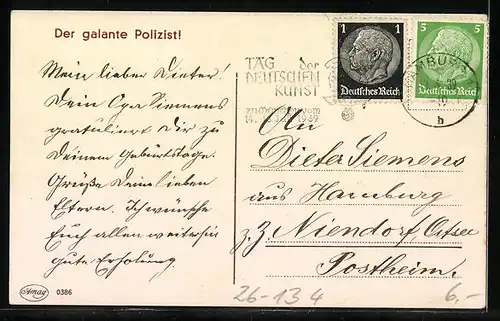 Der galante Polizist!
Mein lieber Dieter!
Dein Opa Siemens
gratuliert Dir zu
Deinem Geburtstage.
Grüße Deine lieben
Eltern. Ich wünsche
Euch allen weiterhin
gute Erholung
Amag
0386
TAG der
DEUTSCHEN
KUNST
1939
1 1
Deutsches Reich
5 5
Deutsches Reich
b
An
Dieter Siemens
aus Hamburg
z. Z. Niendorf, Ostsee
Postheim.
26-134
6,-